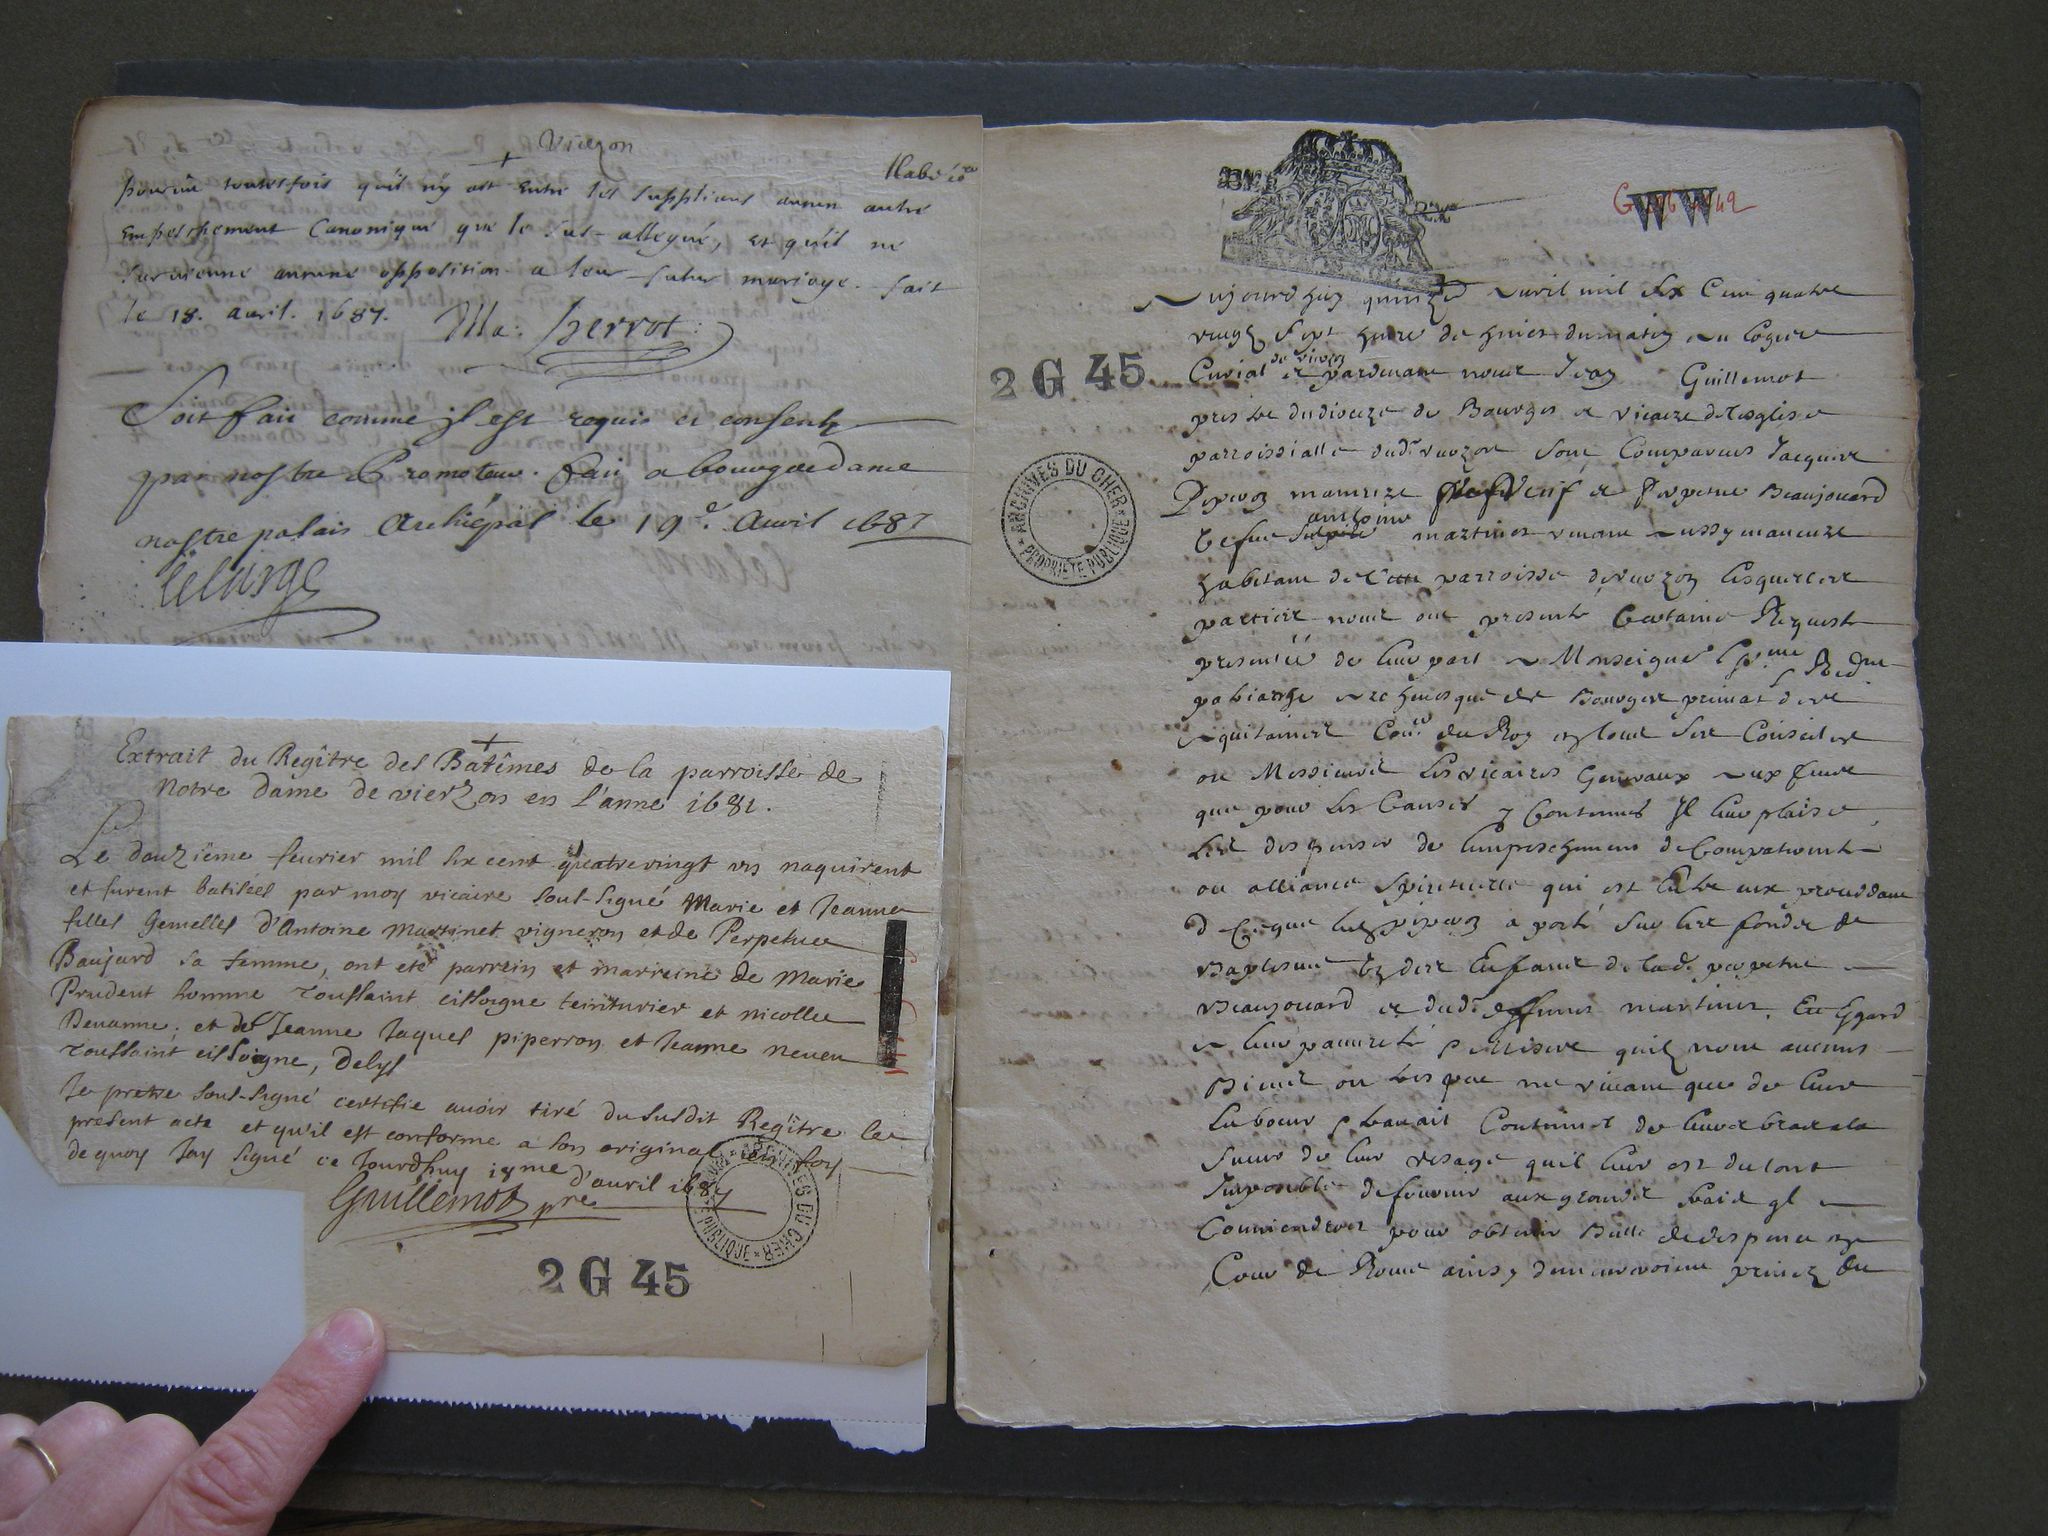 Vierzon
pourvû toutesfois qu'il ny ait entre les suppliens aucun autre
empeschement canonique que le sus-allegué, et qu'il ne
survienne aucune opposition a leur futur mariage. fait
le 18. avril. 1687.
Soit faict comme il est requis et consenty
par nostre Promoteur. faict a bourges dans
nostre palais Archiépal le 19e. Avril 1687
Lelarge
Extrait du Regître des Batêmes de la parroisse de
notre dame de vierzon en l'anne 1681.
Le douzième feurier mil six cent quatrevingt un naquirent
et furent batisées par moy vicaire sous-signé Marie et Jeanne
filles gemelles d'Antoine Martinet vigneron et de Perpetue
Baujard sa femme, ont eté parrein et marreine de Marie
Prudent homme Toussaint cissoigne teinturier et nicolle
Deuanne; et de Jeanne Jaques piperron et Jeanne neueu
Toussaint cissoigne, Delys
Je pretre sous-signé certifie avoir tiré du susdit Regître le
present acte et qu'il est conforme a son original en foy
de quoy Jay signé ce Jourdhuy 18me d'avril 1687
Guillemot pre
2 G 45
ARCHIVES DU CHER
PROPRIETE PUBLIQUE
2 G 45
ARCHIVES DU CHER
PROPRIETE PUBLIQUE
Aujourdhuy quinze Avril mil six Cens quatre
vingtz sept heure de huict du matin au logis
Curial de vierzon et pardevant nous Jean Guillemot
prestre du dioceze de Bourges et vicaire de lesglise
parroissialle dud. vierzon sont Comparus Jacques
veuf et Perpetue Beaujouard
antoine martinet vivant aussy
habitans de cette parroisse de vierzon lesquelles
parties nous ont presenté Certaine Requeste
presentée de leur part a Monseigneur
patriarche archevesque de Bourges primat des
Aquitaines Conr. du Roy en tous ses Conseils
ou Messieurs les vicaires Generaux aux fins
que pour les Causes y Contenues Il leur plaise
les dispenser de lempeschement de Compaternité
ou alliance spirituelle qui est Entre eux
a porté sur les fonds de
Baptesme des Enfans de lad. perpetue
Beaujouard et dud. deffunct martinet. Eu Egard
a leur pauvreté & Misere quilz nont aucuns
Biens ne vivant que de leur
Labeur & travail Continuel de leurs bras
sueur de leur visage quil leur est du tout
Impossible de fournir aux grands fraix quil
Conviendroit pour obtenir Bulle de dispence en
Cour de Rome ainsy demeureroient privez du